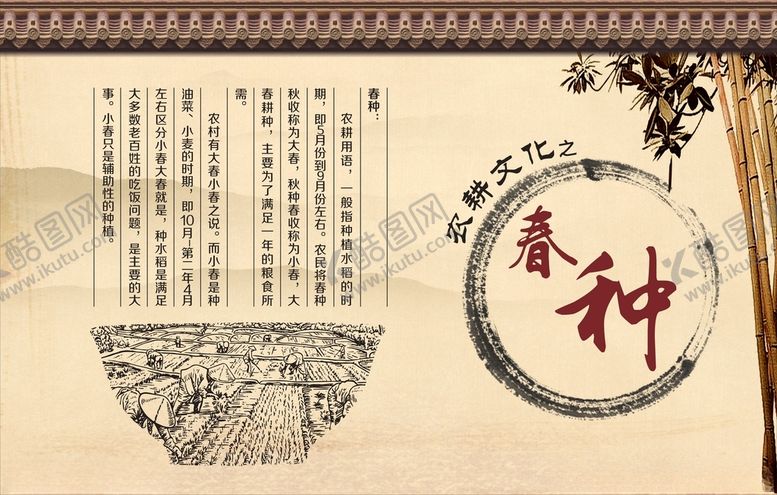 农耕文化之
春种
春种：
农耕用语，一般指种植水稻的时
期，即5月份到9月份左右。农民将春种
秋收称为大春，秋种春收称为小春，大
春耕种，主要为了满足一年的粮食所
需。
农村有大春小春之说。而小春是种
油菜、小麦的时期，即10月-第二年4月
左右区分小春大春就是，种水稻是满足
大多数老百姓的吃饭问题，是主要的大
事。小春只是辅助性的种植。
酷图网
www.ikutu.com
酷图网
www.ikutu.com
酷图网
www.ikutu.com
酷图网
www.ikutu.com